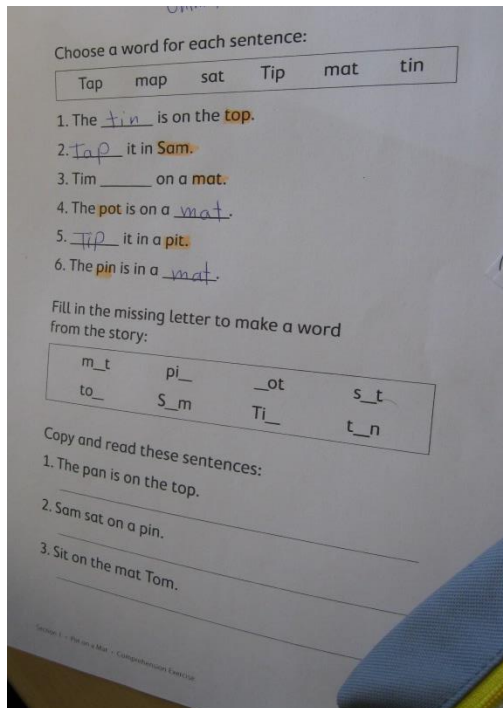 Choose a word for each sentence:
Tap map sat Tip mat tin
1. The tin is on the top.
2. Tap it in Sam.
3. Tim ______ on a mat.
4. The pot is on a mat.
5. Tip it in a pit.
6. The pin is in a mat.
Fill in the missing letter to make a word
from the story:
m_t pi_ _ot s_t
to_ S_m Ti_ t_n
Copy and read these sentences:
1. The pan is on the top.
2. Sam sat on a pin.
3. Sit on the mat Tom.
Section 1 • Pot on a Mat • Comprehension Exercise